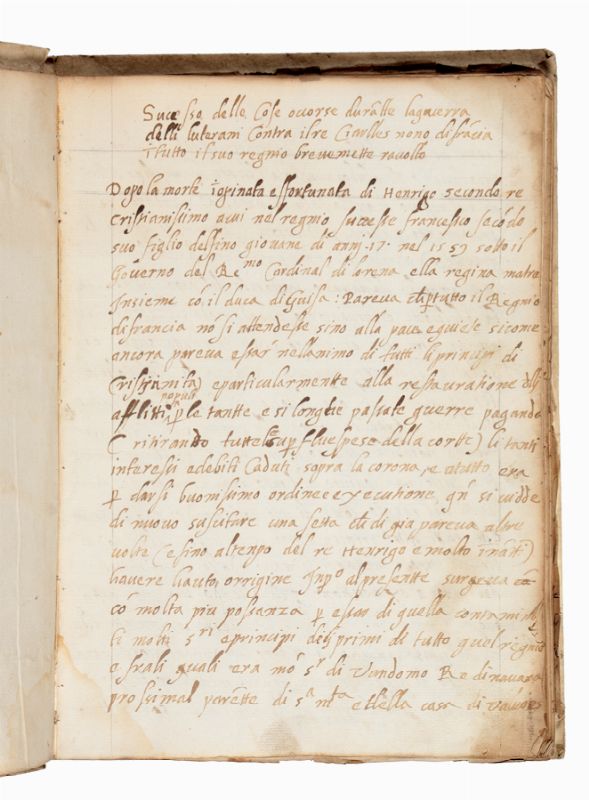 Sucesso delle Cose ocorse durātte la guerra
delli luterani Contra il re Ciarlles nono di frācia
ī tutto il suo regnio brevemette racolto
Dopo la morte īopinata e sfortunata di Henrigo secondo re
Cristianissimo aĉui nel regnio sucesse francesco secōdo
suo figlio delfino giovane di anni 17. nel 1559 sotto il
Governo del Remo Cardinal di lorena ella regina matre
Insieme cō il duca di Guisa: Pareva ch p tutto il Regnio
di francia nō si attendesse sino alla pace e quiese si come
ancora pareva essar nell animo di tutti li principi di
Cristianita) e particularmente alla restauratione delli
afflitti populi p le tantte e si longhe passate guerre pagando
( ritirando tutte le sup flue spese della cortte) li tanti
interessi e debiti Caduti sopra la corona, e a tutto era
p darsi buonissimo ordine e exsecutione, qn si vidde
di nuovo suscitare una setta ch di gia pareva altre
volte (e sino al tempo del re Henrigo e molto inātti)
havere hauto orrigine Inpo al presentte surgeva
cō molta piu possanza p essar di quella contamina
ti molti sri e principi delli primi di tutto quel regnio
e fra li quali era mō sr di Vandomo Re di navara
prossimal parentte di sa mta e della casa di Valois